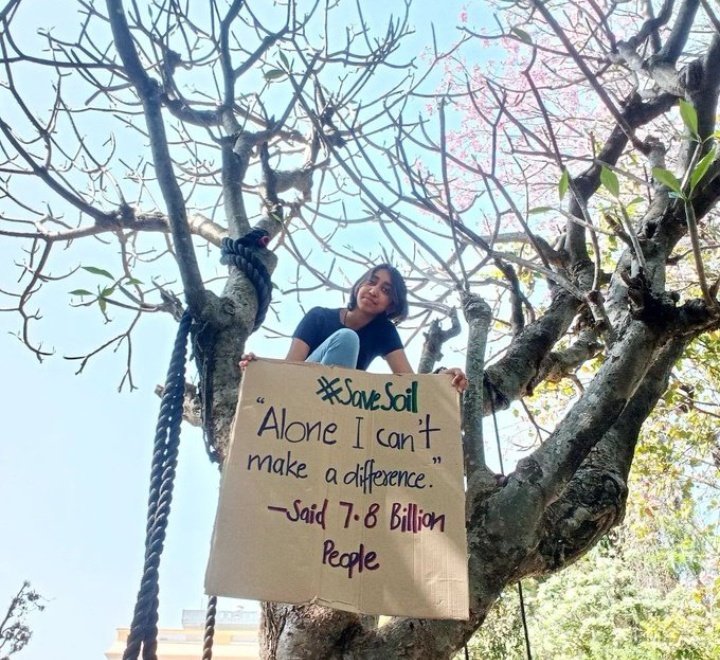 #SaveSoil
"Alone I can't
make a difference."
-Said 7.8 Billion
People